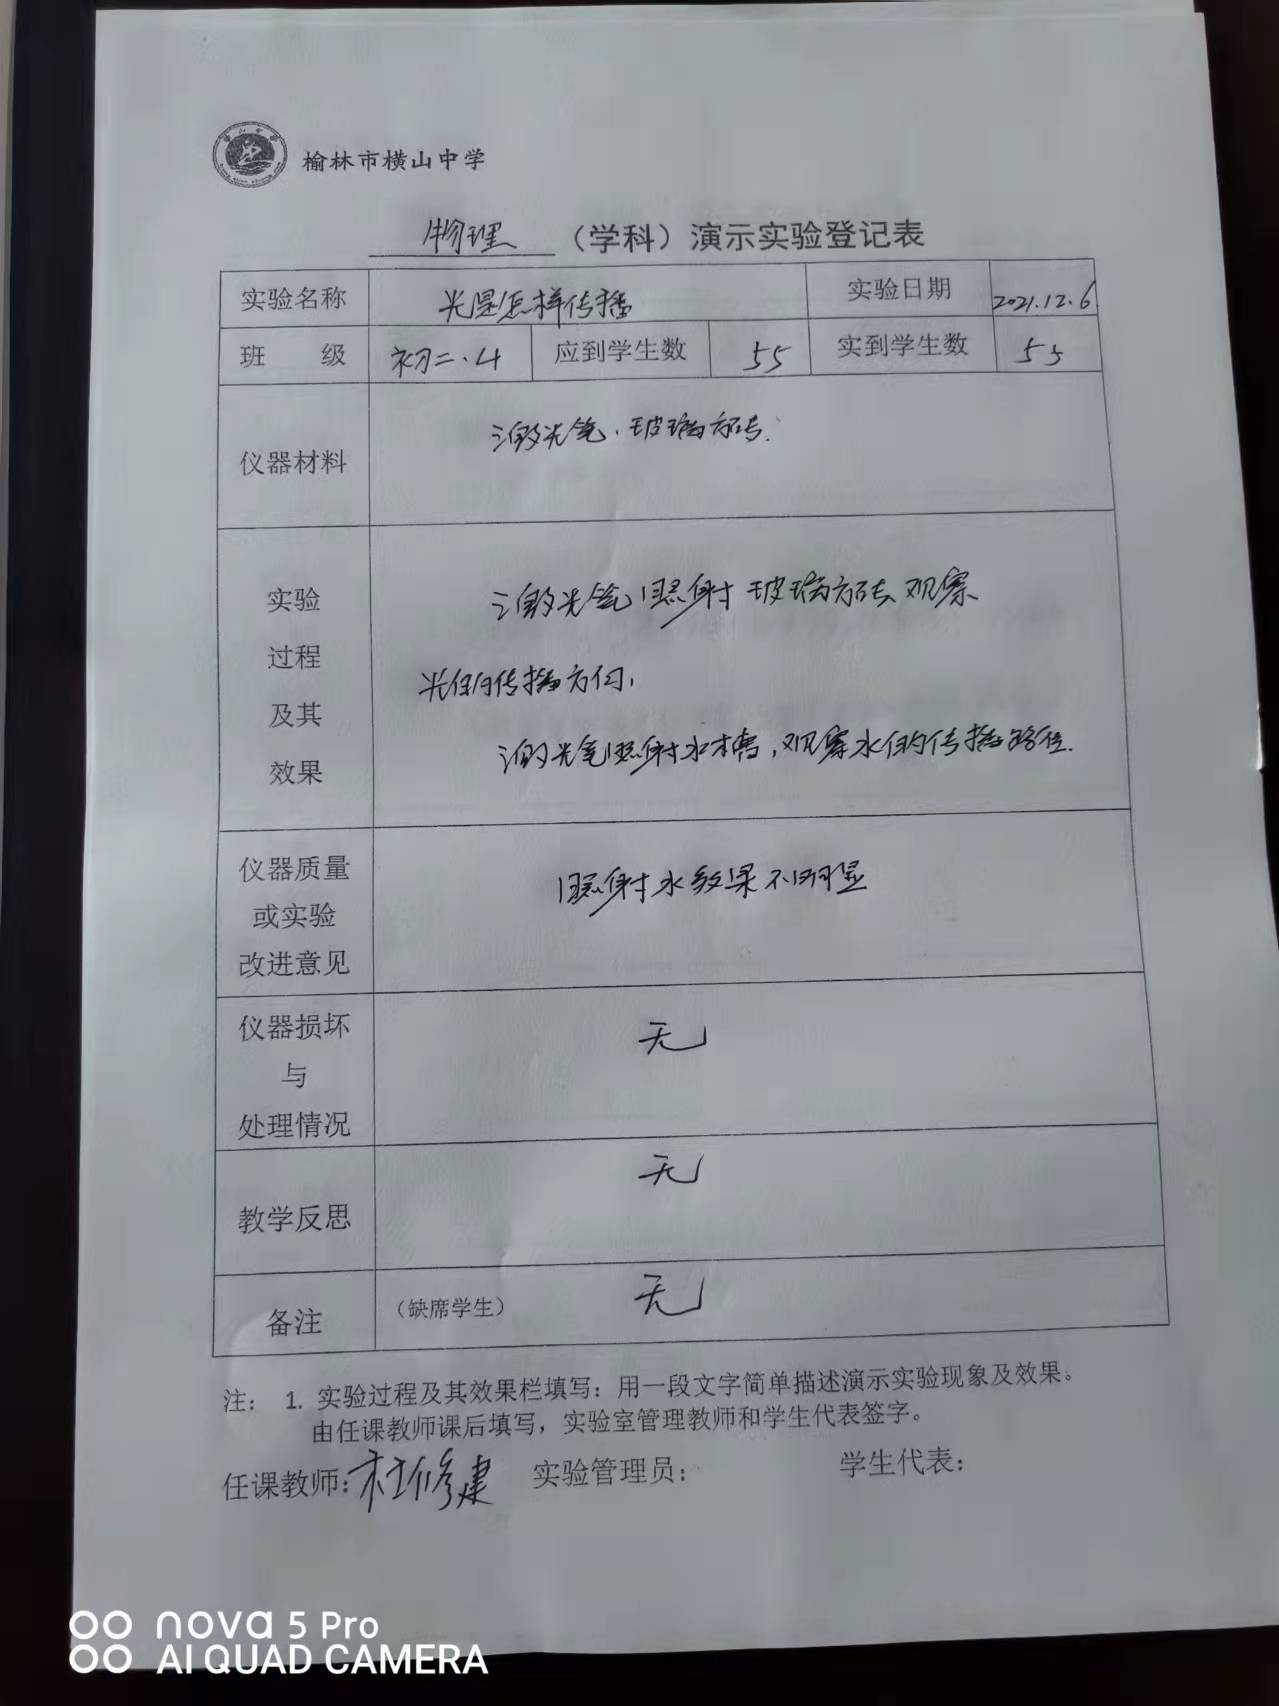 榆林市横山中学
物理（学科）演示实验登记表
实验名称 光是怎样传播 实验日期 2021.12.6
班 级 初二.4 应到学生数 55 实到学生数 55
仪器材料 激光笔.玻璃方砖.
实验
过程
及其
效果
激光笔照射玻璃方砖观察
光的传播方向,
激光笔照射水槽,观察水的传播路径.
仪器质量
或实验
改进意见
照射水效果不明显
仪器损坏
与
处理情况
无
教学反思 无
备注 （缺席学生） 无
注： 1. 实验过程及其效果栏填写：用一段文字简单描述演示实验现象及效果。
由任课教师课后填写，实验室管理教师和学生代表签字。
任课教师：杜修建 实验管理员： 学生代表：
nova 5 Pro
AI QUAD CAMERA